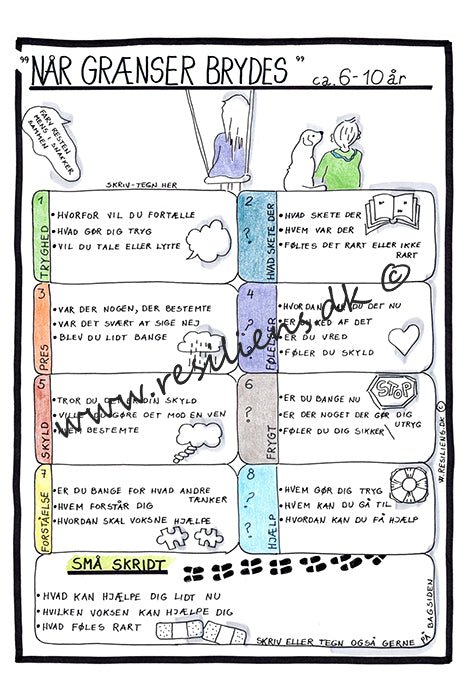 "NÅR GRÆNSER BRYDES"
ca. 6-10 år
FARV RESTEN
MENS I SNAKKER
SAMMEN
SKRIV-TEGN HER
1
TRYGHED
• HVORFOR VIL DU FORTÆLLE
• HVAD GØR DIG TRYG
• VIL DU TALE ELLER LYTTE
2
?
HVAD SKETE DER
• HVAD SKETE DER
• HVEM VAR DER
• FØLTES DET RART ELLER IKKE
RART
3
PRES
• VAR DER NOGEN, DER BESTEMTE
• VAR DET SVÆRT AT SIGE NEJ
• BLEV DU LIDT BANGE
4
?
FØLELSER
• HVORDAN DU DET NU
• ER DU KED AF DET
• ER DU VRED
• FØLER DU SKYLD
5
SKYLD
• TROR DU DET ER DIN SKYLD
• VILLE DU GØRE DET MOD EN VEN
• HVEM BESTEMTE
6
?
FRYGT
STOP
• ER DU BANGE NU
• ER DER NOGET DER GØR DIG
UTRYG
• FØLER DU DIG SIKKER
7
FORSTÅELSE
• ER DU BANGE FOR HVAD ANDRE
TÆNKER
• HVEM FORSTÅR DIG
• HVORDAN SKAL VOKSNE HJÆLPE
8
?
?
HJÆLP
• HVEM GØR DIG TRYG
• HVEM KAN DU GÅ TIL
• HVORDAN KAN DU FÅ HJÆLP
SMÅ SKRIDT
• HVAD KAN HJÆLPE DIG LIDT NU
• HVILKEN VOKSEN KAN HJÆLPE DIG
• HVAD FØLES RART
SKRIV ELLER TEGN OGSÅ GERNE PÅ BAGSIDEN
W.RESILIENS.DK ©
www.resiliens.dk ©